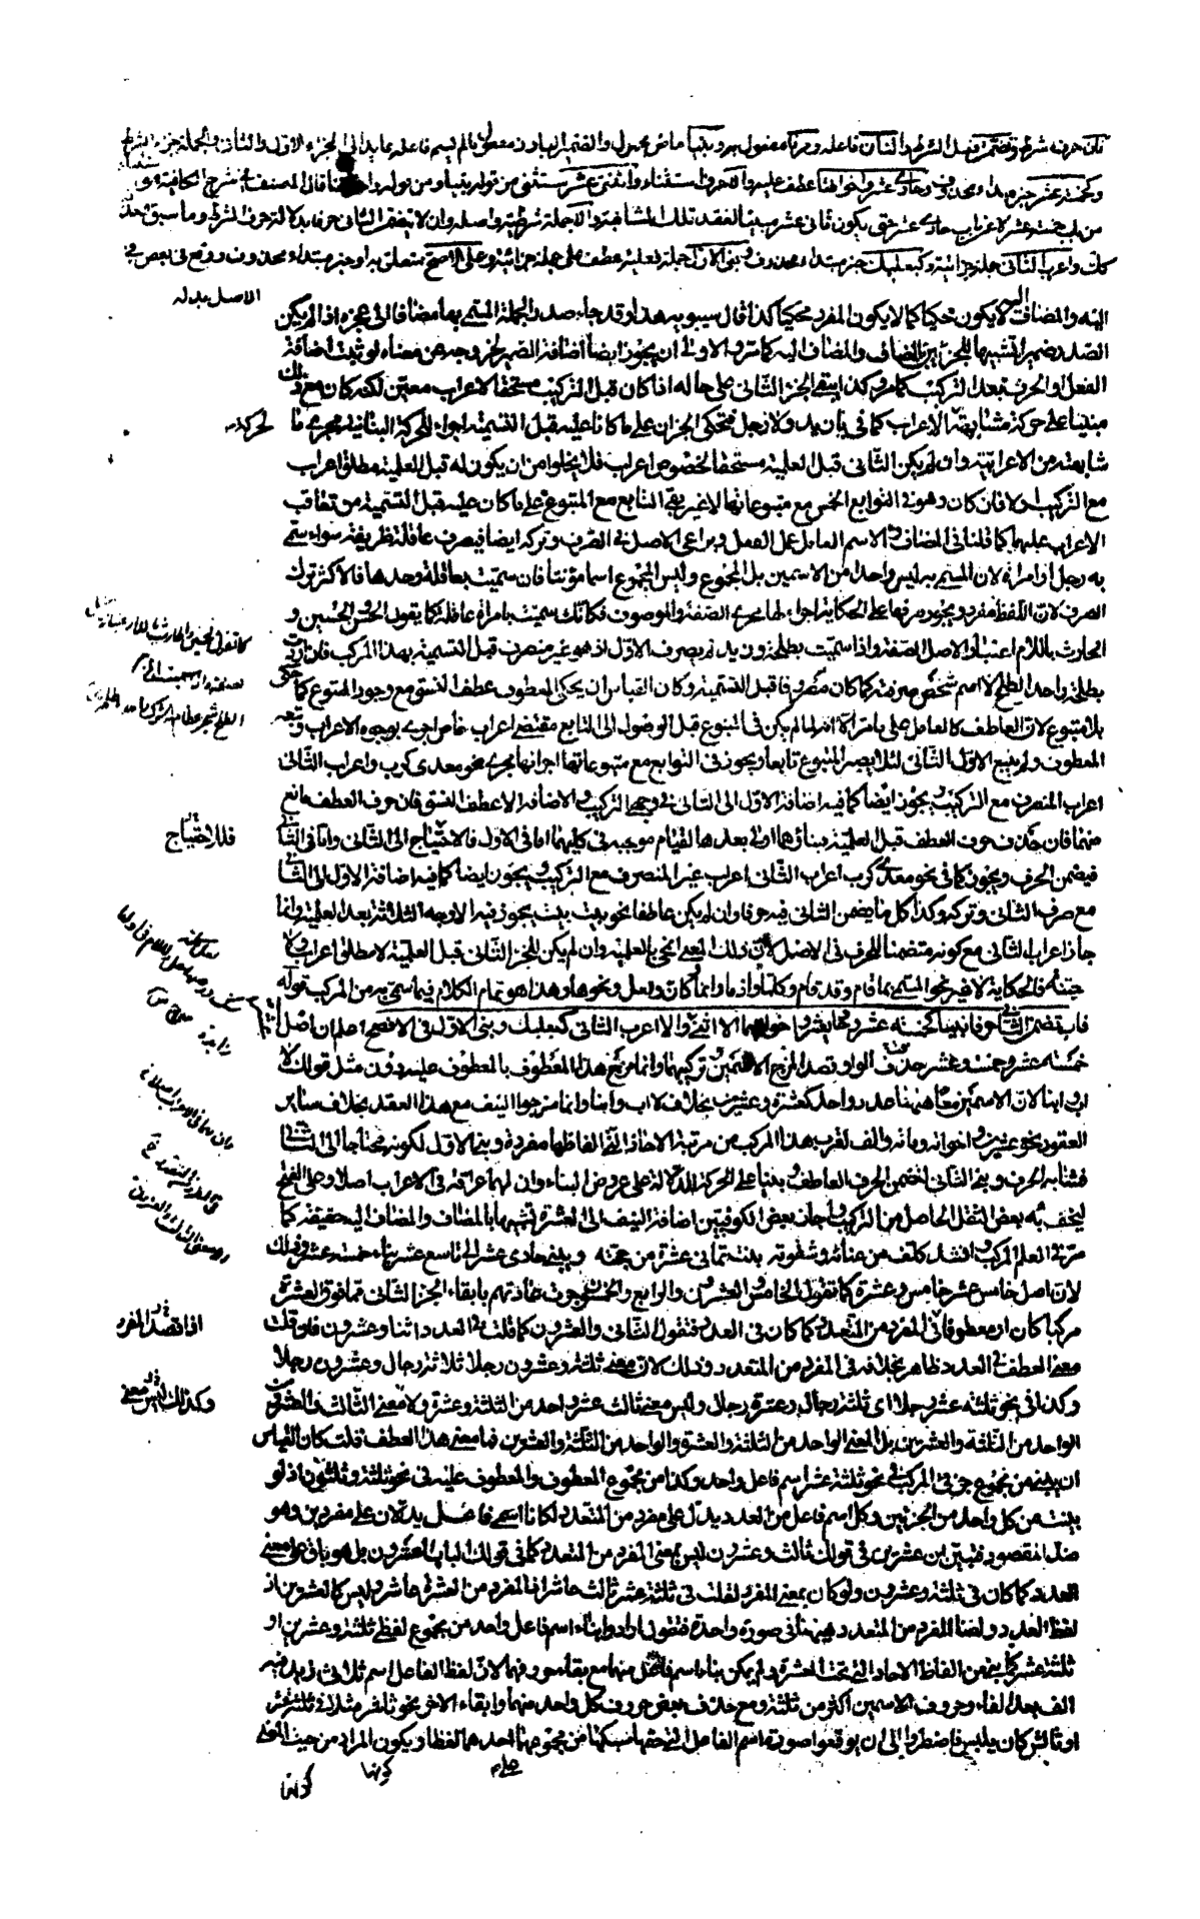 فان حرف شرط وتضمن فعل الشرط والثاني فاعله وحرفا مفعول به وبنيا ماض مجهول والضمير البارز مفعول ما لم يسم فاعله عايد الى الجزء الاول والثاني والجملة جزاء الشرط
وكخمسة عشر خبر مبتداء محذوف وحادي عشر واخواتها عطف عليه والا حرف استثناء واثني عشر مستثنى من قوله بنيا ومن قوله قال المصنف في شرح الكافية
من باب خمسة عشر لا عراب حادي عشر حتى يكون ثاني عشر مبنيا لفقد تلك المشابهة والا جملة شرطية واصله وان لا يتضمن الثاني حرفا بدلالة حرف الشرط وما سبق
واعرب الثاني جملة جزائية وكبعلبك خبر مبتداء محذوف وبني الاول جملة فعلية عطف على جملة جزائية وعلى الاصح متعلق به او خبر مبتداء محذوف ووقع في بعض
الاصل بدله
اليه والمضاف لا يكون محكيا كما لا يكون المفرد محكيا كذا قال سيبويه هذا وقد جاء صدر الجملة المسمى بها مضافا الى عجزه اذا لم يكن
الصدر ضميرا تشبيها للجزئين بالمضاف والمضاف اليه كما مر والاولى ان يجوز ايضا اضافة الضمير لخروجه عن معناه لو ثبت اضافة
الفعل او الحرف بعد التركيب كما مر وكذا يبقى الجزء الثاني على حاله اذا كان قبل التركيب مستحقا لاعراب معين لكنه كان مع ذلك
مبنيا على حركة مشابهة الاعراب كما في يا زيد ولا رجل فتحكى الجزان على ما كانا عليه قبل التسمية اجراء للحركة البنائية مجرى ما
شابهته من الاعرابية وان لم يكن الثاني قبل العلمية مستحقا لخصوص اعراب فلا يخلوا من ان يكون له قبل العلمية مطلق اعراب
مع التركيب او لا فان كان وهو في التوابع الخمس مع متبوعاتها لا غير بقي التابع مع المتبوع على ما كان عليه قبل التسمية من تعاقب
الاعراب عليهما كما قلنا في المضاف والاسم العامل عمل الفعل ويراعى الاصل في الصرف وتركه ايضا فيصرف عاقلة ظريفة سواء سمى
به رجل او امرأة لان المسمى به ليس واحدا من الاسمين بل المجموع وليس المجموع اسما مؤنثا فان سميت بعاقلة وحدها فالاكثر ترك
الصرف لان اللفظ مفرد ويجوز صرفها على الحكاية اجراء لها مجرى الصفة والموصوف فكانك سميت بامراة عاقلة كما يقول الحسن والحسين و
الحارث باللام اعتبارا لاصل الصفة واذا سميت بطلحة وزيد لم يصرف الاول اذ هو غير منصرف قبل التسمية بهذا المركب فان اردت
بطلحة واحد الطلح لا اسم شخص صرفته كما كان منصرفا قبل التسمية وكان القياس ان يحكى المعطوف عطف النسق مع وجود المتبوع كما
بلا متبوع لان العاطف كالعامل على ما مر الا انه لما لم يكن في المتبوع قبل الوصول الى التابع مقتضى اعراب خاص اجري بوجوه الاعراب
المعطوف ولم يتبع الاول الثاني لئلا يصير المتبوع تابعا ويجوز في التوابع مع متبوعاتها اجرائها مجرى نحو معدي كرب واعراب الثاني
اعراب المنصرف مع التركيب ويجوز ايضا كما فيه اضافة الاول الى الثاني في وجهي التركيب والاضافة الا عطف النسق فان حرف العطف مانع
منهما فان حذف حرف العطف قبل العلمية بناؤهما اولى بعدها لقيام موجبه في كليهما اما في الاول فالاحتياج الى الثاني واما في الثاني
فيضمن الحرف ويجوز كما في نحو معدي كرب اعراب الثاني اعراب غير المنصرف مع التركيب ويجوز ايضا كما فيه اضافة الاول الى الثاني
مع صرف الثاني وتركه وكذا كل ما يضمن الثاني فيه حرفا وان لم يكن عاطفا نحو بيت بيت يجوز فيه الاوجه الثلاثة بعد العلمية وانما
جاز اعراب الثاني مع كونه متضمنا للحرف في الاصل لان ذلك المعنى انمحى بالعلمية وان لم يكن للجزء الثاني قبل العلمية لا مطلق اعراب ولا
فالحكاية لا غير نحو المسمى بما قام وقد قام وكلما واذما وانما وكان ولعل ونحوها وهذا هو تمام الكلام فيما سمي به من المركب قوله
فان تضمن الثاني حرفا بنيا كخمسة عشر وحادي عشر واخواتهما الا اثني والا اعرب الثاني كبعلبك وبني الاول في الافصح اعلم ان اصل
خمسة عشر وخمسة وعشر حذف الواو قصدا لمزج الاسمين وتركيبهما وانما مزج هذا المعطوف بالمعطوف عليه دون مثل قولك لا
اب وابنا لان الاسمين معا ههنا عدد واحد كعشرة وعشرين بخلاف لا اب وابنا وانما مزجوا النيف مع هذا العقد بخلاف سائر
العقود نحو عشرين واخواته ومائة والف لقرب هذا المركب من مرتبة الاحاد التي الفاظها مفردة وبني الاول لكونه محتاجا الى الثاني
فشابه الحرف وبني الثاني لتضمن الحرف العاطف وبنيا على الحركة للدلالة على عروض البناء وان لهما عراقة في الاعراب اصلا وعلى الفتح
ليخف به بعض الثقل الحاصل من التركيب واجاز بعض الكوفيين اضافة النيف الى العشرة تشبيها بالمضاف والمضاف اليه حقيقة كما
مر في العلم المركب وانشد كلف من عنائه وشقوته بنت ثماني عشرة من حجته وبني حادي عشر الى تاسع عشر بناء خمسة عشر وذلك
لان اصل خامس عشر خامس وعشرة كما تقول الخامس والعشرين والرابع والخمسون جرت عادتهم بابقاء الجزء الثاني فما فوق العشرة
مركبا كان او معطوفا في المفرد من المتعدد كما كان في العدد فتقول الثاني والعشرون كما قلت في العدد اثنا وعشرون فلو قلت
معنى العطف في العدد ظاهر بخلافه في المفرد من المتعدد وذلك لان معنى ثلثة وعشرون رجلا ثلاثة رجال وعشرون رجلا
وكذا في نحو ثلثة عشر رجلا اى ثلثة رجال وعشرة رجال وليس معنى ثالث عشر واحد من الثلثة وعشرة ولا معنى الثالث والعشرون
الواحد من الثلثة والعشرين بل المعنى الواحد من الثلثة والعشرة والواحد من الثلثة والعشرين فما معنى هذا العطف قلت كان القياس
ان يبنى من مجموع جزئي المركب في نحو ثلثة عشر اسم فاعل واحد وكذا من مجموع المعطوف والمعطوف عليه في نحو ثلثة وثلثون اذ لو
بنيت من كل واحد من الجزئين وكل اسم فاعل من العدد يدل على مفرد من المتعدد لكانا اسمى فاعل يدلان على مفردين وهو
ضد المقصود فتبين ان عشرين في قولك ثالث وعشرون ليس بمعنى المفرد من المتعدد كما في قولك الباب العشرون بل هو باق على معنى
العدد كما كان في ثلثة وعشرين ولو كان بمعنى المفرد لقلت في ثلثة عشر ثالث عاشر اذ المفرد من العشرة عاشر وليس كالعشرين اذ
لفظ العدد ولفظ المفرد من المتعدد فيهما في صورة واحدة فنقول ارادوا بناء اسم فاعل واحد من مجموع لفظي ثلثة وعشرين او
ثلثة عشر كما يبنى من الفاظ الاحاد التي تحت العشرة ولم يمكن بناء اسم فاعل منهما مع بقاء حروفهما لان لفظ الفاعل اسم ثلاثي زيد فيه
الف بعد الفاء وحروف الاسمين اكثر من ثلثة ومع حذف بعض حروف كل واحد منهما وابقاء الاخر نحو ثالغر مثلا في ثلثة عشر
او ثالش كان يلبس فاضطروا الى ان يوقعوا صورة اسم الفاعل التي حقها سبكها من مجموعهما احدهما لفظا ويكون المراد من حيث المعنى
فللاحتياج
اذا قصد المفرد
وكذلك ليس معنى